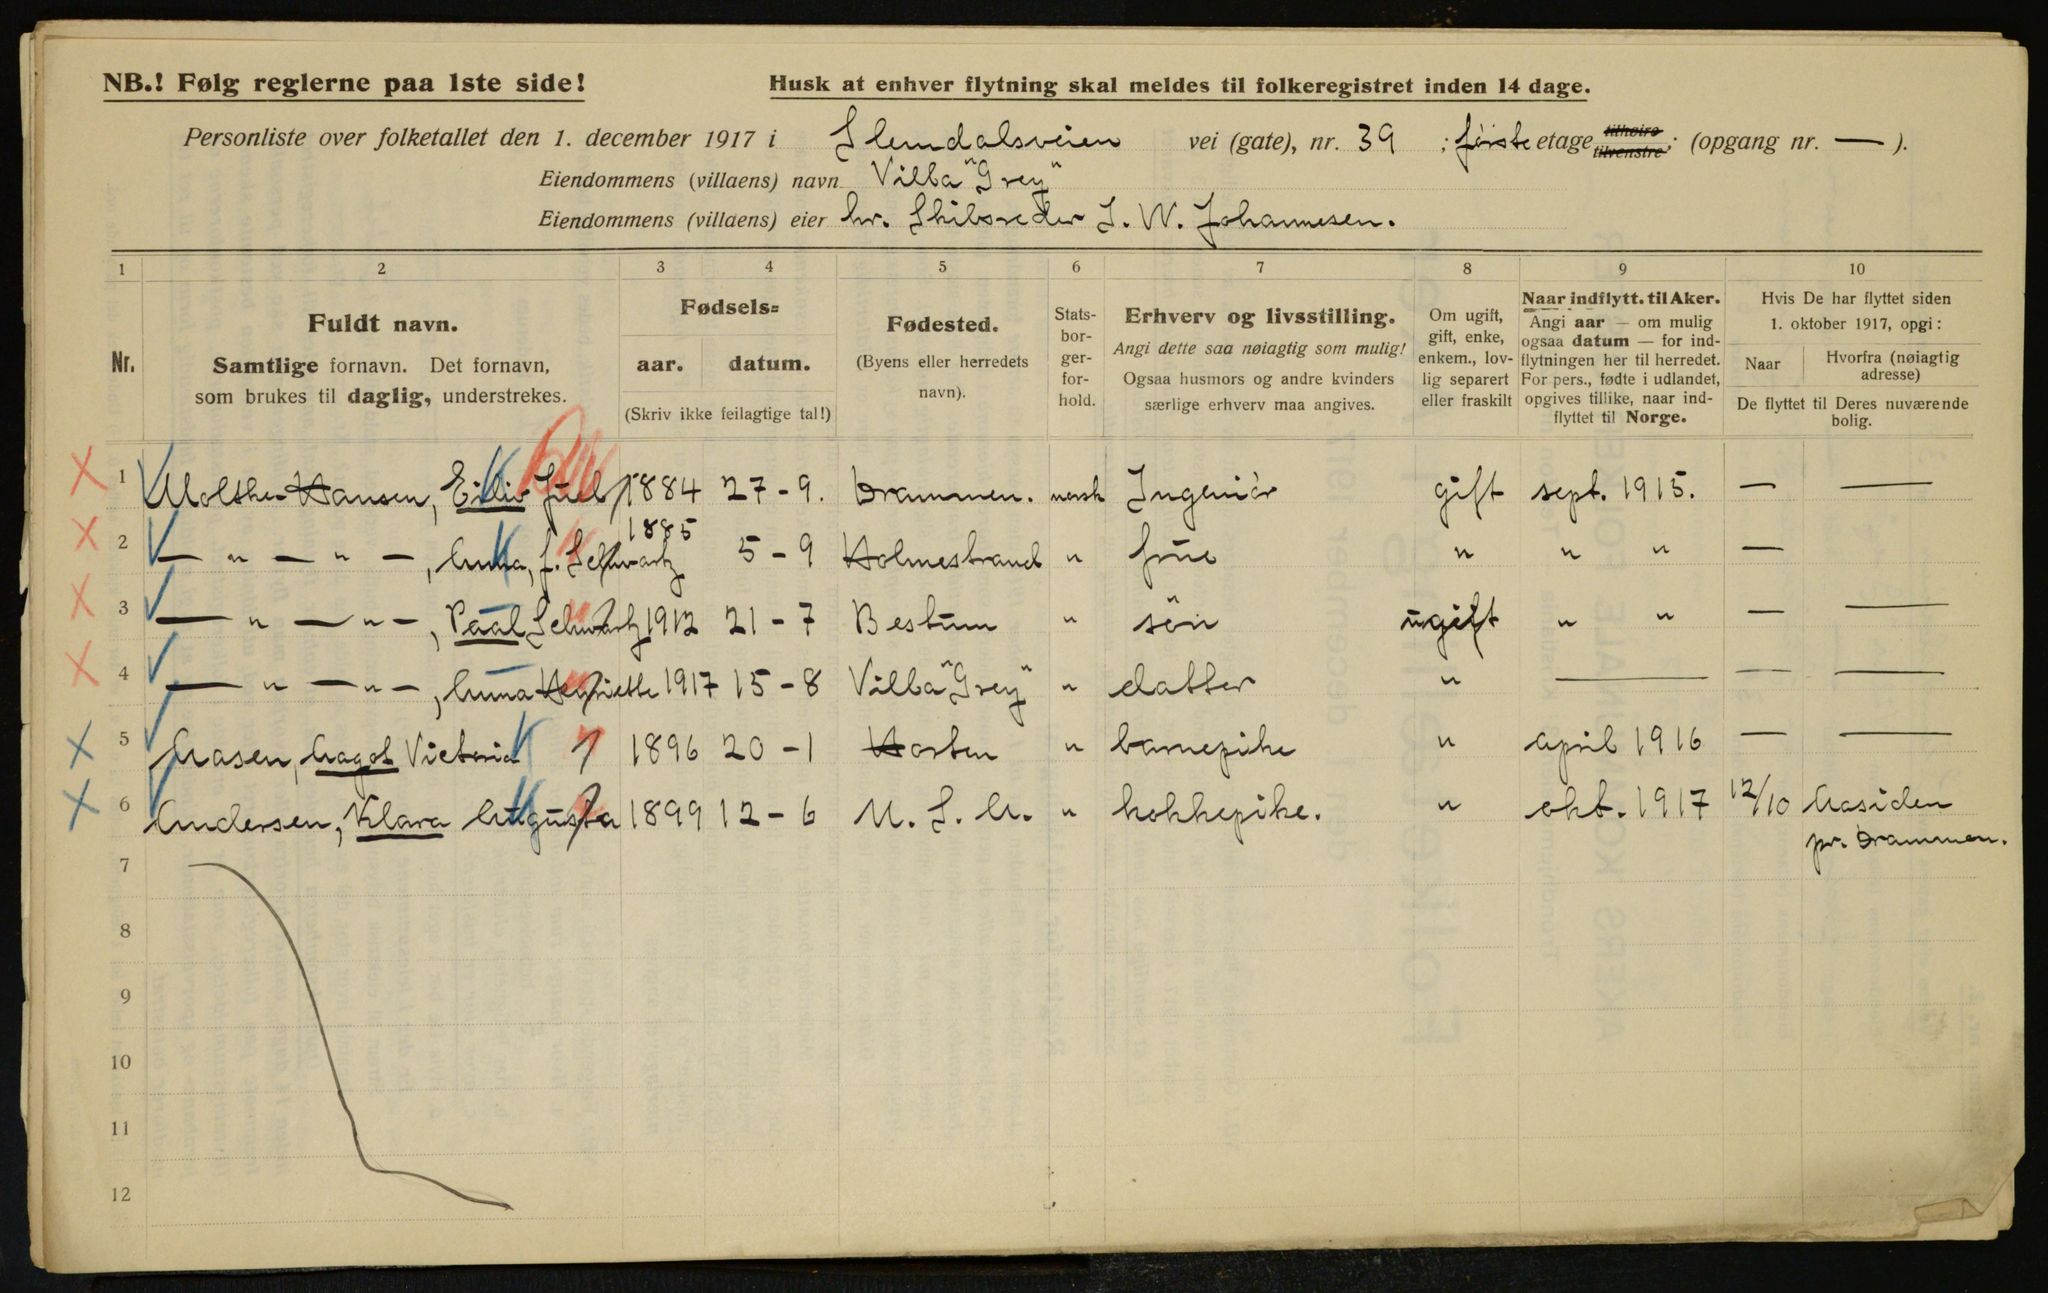 NB.! Følg reglerne paa 1ste side!
Husk at enhver flytning skal meldes til folkeregistret inden 14 dage.
Personliste over folketallet den 1. december 1917 i Slemdalsveien vei (gate), nr. 39 ; første etage tilhøire tilvenstre; (opgang nr. — ).
Eiendommens (villaens) navn Villa "Grey"
Eiendommens (villaens) eier hr. Skibsreder J. W. Johannesen.
1 2 3 4 5 6 7 8 9 10
Nr.
Fuldt navn.
Samtlige fornavn. Det fornavn,
som brukes til daglig, understrekes.
Fødsels=
aar. datum.
(Skriv ikke feilagtige tal!)
Fødested.
(Byens eller herredets
navn).
Stats-
bor-
ger-
for-
hold.
Erhverv og livsstilling.
Angi dette saa nøiagtig som mulig!
Ogsaa husmors og andre kvinders
særlige erhverv maa angives.
Om ugift,
gift, enke,
enkem., lov-
lig separert
eller fraskilt
Naar indflytt. til Aker.
Angi aar — om mulig
ogsaa datum — for ind-
flytningen her til herredet.
For pers., fødte i udlandet,
opgives tillike, naar ind-
flyttet til Norge.
Hvis De har flyttet siden
1. oktober 1917, opgi:
Naar
Hvorfra (nøiagtig
adresse)
De flyttet til Deres nuværende
bolig.
1 Molthe-Hansen, Eiliv Juel 1884 27-9. Drammen. norsk Ingeniør gift sept. 1915. — —
2 — " — " —, Anna, f. Schwartz 1885 5-9 Holmestrand " frue " " " —
3 — " — " —, Paal Schwartz 1912 21-7 Bestum " søn ugift " " — —
4 — " — " —, Anna Henriette 1917 15-8 Villa "Grey" " datter " — — —
5 Aasen, Aagot Victoria 1896 20-1 Horten " barnepike " april 1916 — —
6 Andersen, Klara Augusta 1899 12-6 U. S. A. " kokkepike. " okt. 1917 12/10 Aasiden
pr. Drammen.
7
8
9
10
11
12